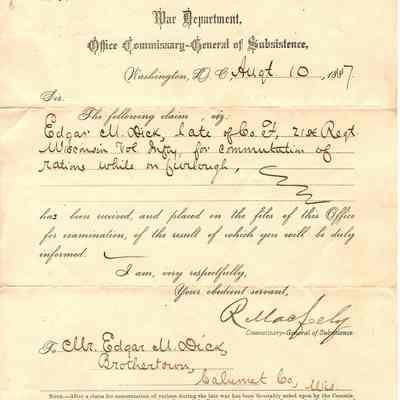 War Department,
Office Commissary-General of Subsistence,
Washington, D. C., Augt 10, 1887.
Sir:
The following claim, viz:
Edgar M. Dick, late of Co. F, 21st Regt
Wisconsin Vol Infty, for commutation of
rations while on furlough,
has been received, and placed on the files of this Office
for examination, of the result of which you will be duly
informed.
I am, very respectfully,
Your obedient servant,
R Macfeely
Commissary-General of Subsistence
To Mr. Edgar M. Dick,
Brothertown,
Calumet Co,
Wis.
NOTE.—After a claim for commutation of rations during the late war has been favorably acted upon by the Commis-